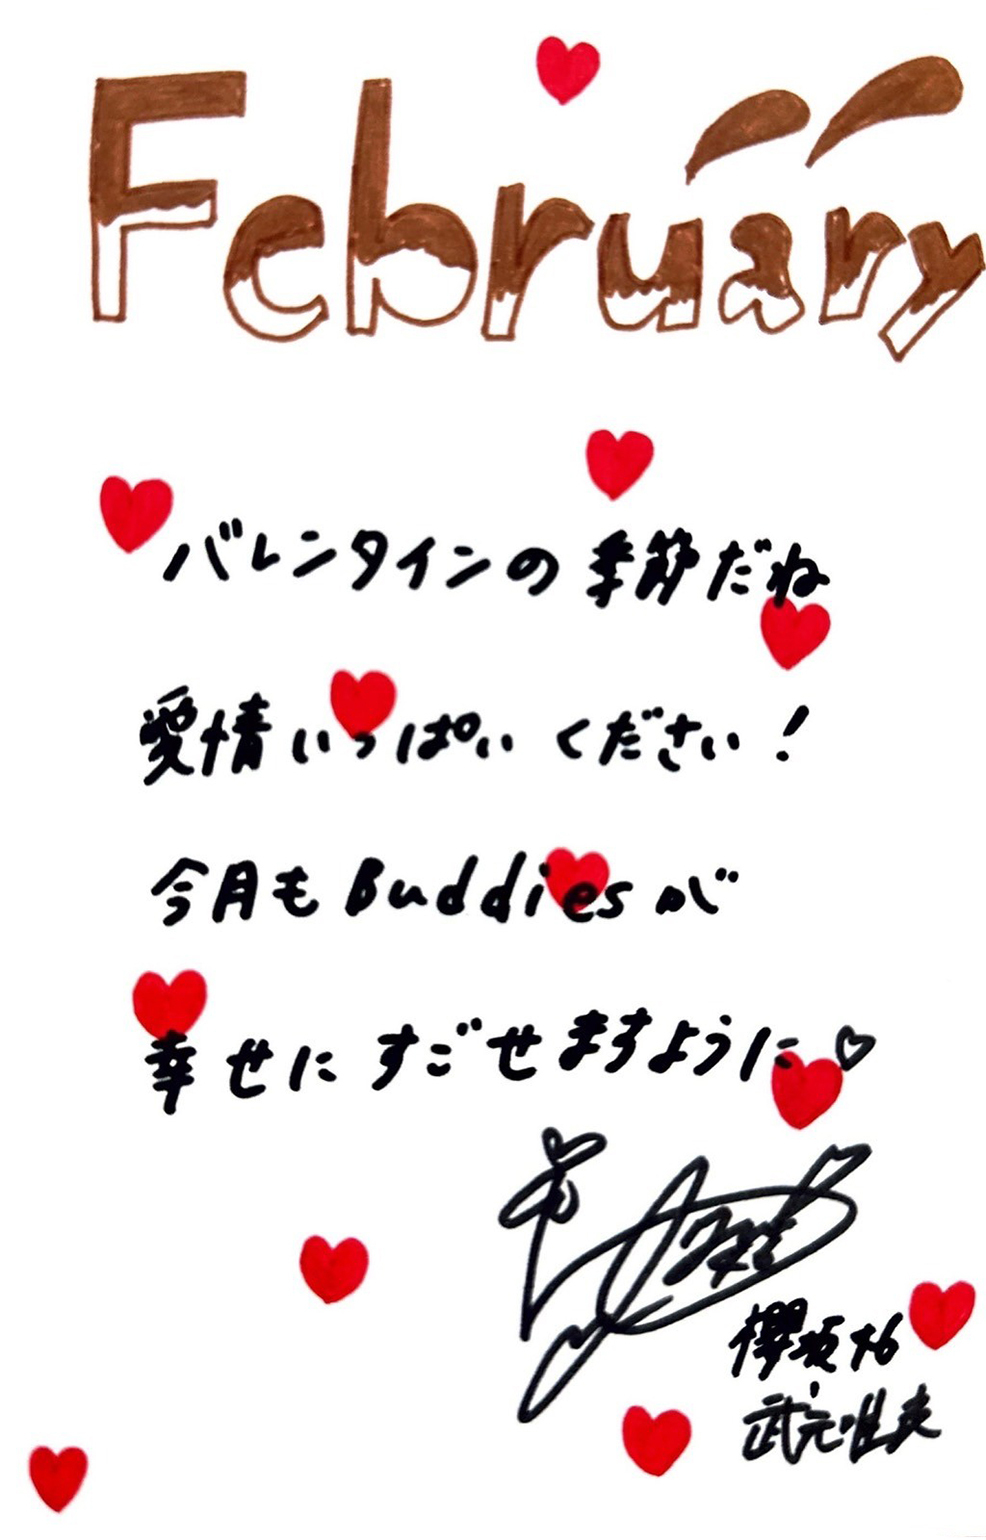 February
バレンタインの季節だね
愛情いっぱいください!
今月もBuddiesが
幸せにすごせますように♡
櫻坂46
武元唯衣